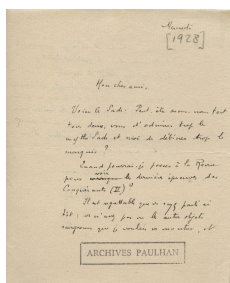 Mercredi
[1928]
Mon cher ami,
Voici le Sade. Peut-être avons-nous tort
tous deux, vous d'admirer trop le
mythe Sade, et moi de détester trop le
marquis ?
Quand pourrai-je passer à la Revue
pour voir la dernière épreuve des
Conquérants (II) ?
Il est regrettable que vous ayez parlé si
tôt : ce n'est pas que les autres
que je voulais vous, et
ARCHIVES PAULHAN